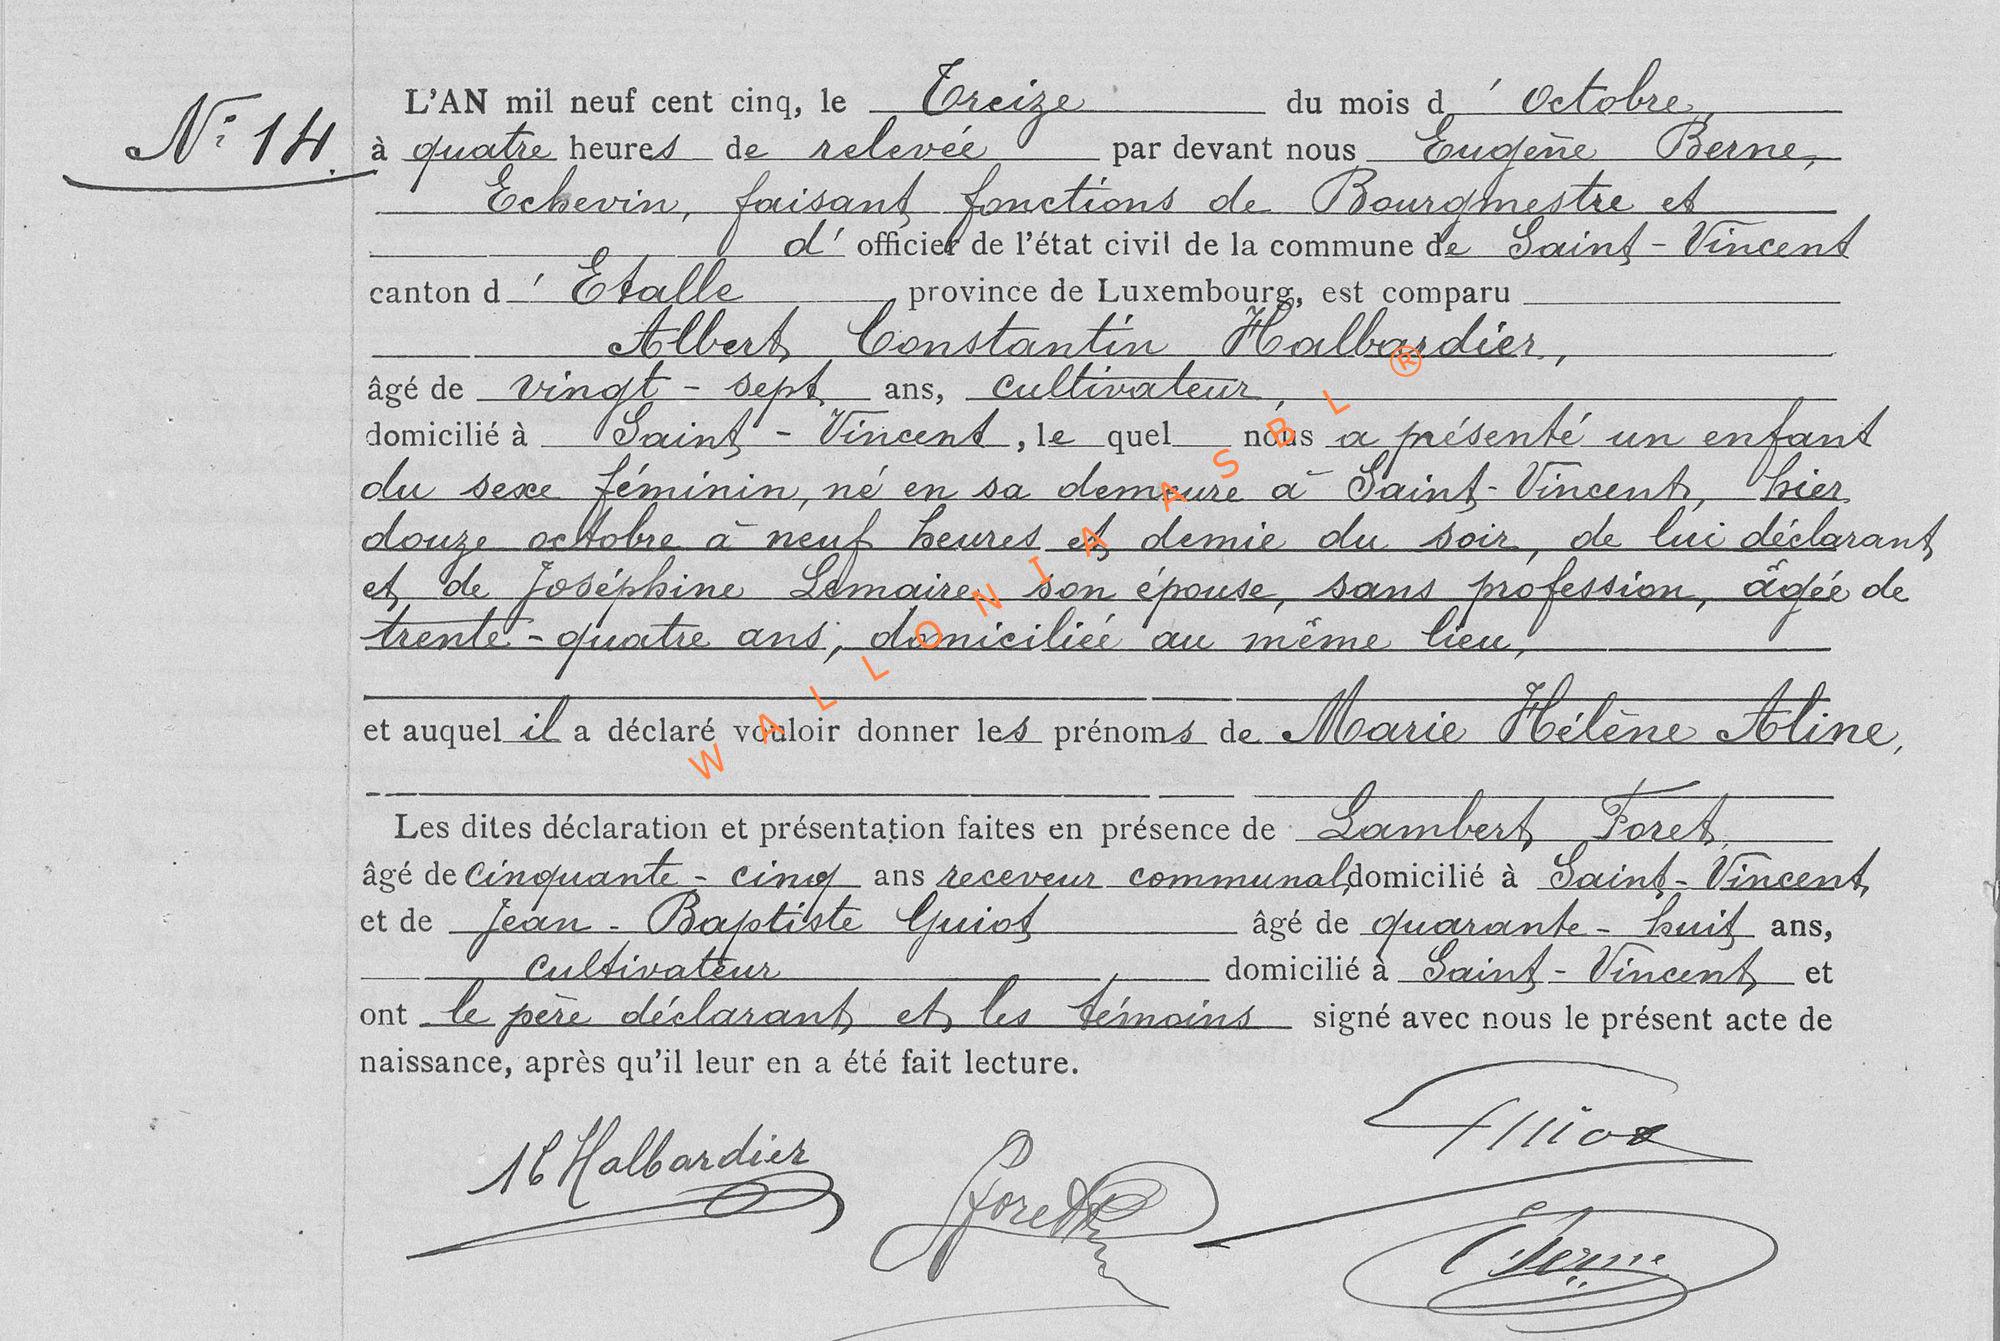 N° 14.
L'AN mil neuf cent cinq, le Treize du mois d' octobre
à quatre heures de relevée par devant nous Eugène Berne,
Echevin, faisant fonctions de Bourgmestre et
d' officier de l'état civil de la commune de Saint-Vincent
canton d' Etalle province de Luxembourg, est comparu
Albert Constantin Halbardier,
âgé de vingt-sept ans, cultivateur,
domicilié à Saint-Vincent, le quel nous a présenté un enfant
du sexe féminin, né en sa demeure à Saint-Vincent, hier
douze octobre à neuf heures et demie du soir, de lui déclarant
et de Joséphine Lemaire son épouse, sans profession, âgée de
trente-quatre ans, domiciliée au même lieu,
et auquel il a déclaré vouloir donner les prénoms de Marie Hélène Aline,
Les dites déclaration et présentation faites en présence de Lambert Foret,
âgé de cinquante-cinq ans receveur communal, domicilié à Saint-Vincent,
et de Jean-Baptiste Guiot âgé de quarante-huit ans,
cultivateur, domicilié à Saint-Vincent, et
ont le père déclarant et les témoins signé avec nous le présent acte de
naissance, après qu'il leur en a été fait lecture.
Halbardier
Guiot
Foret
E Berne
WALLONIA ASBL ®